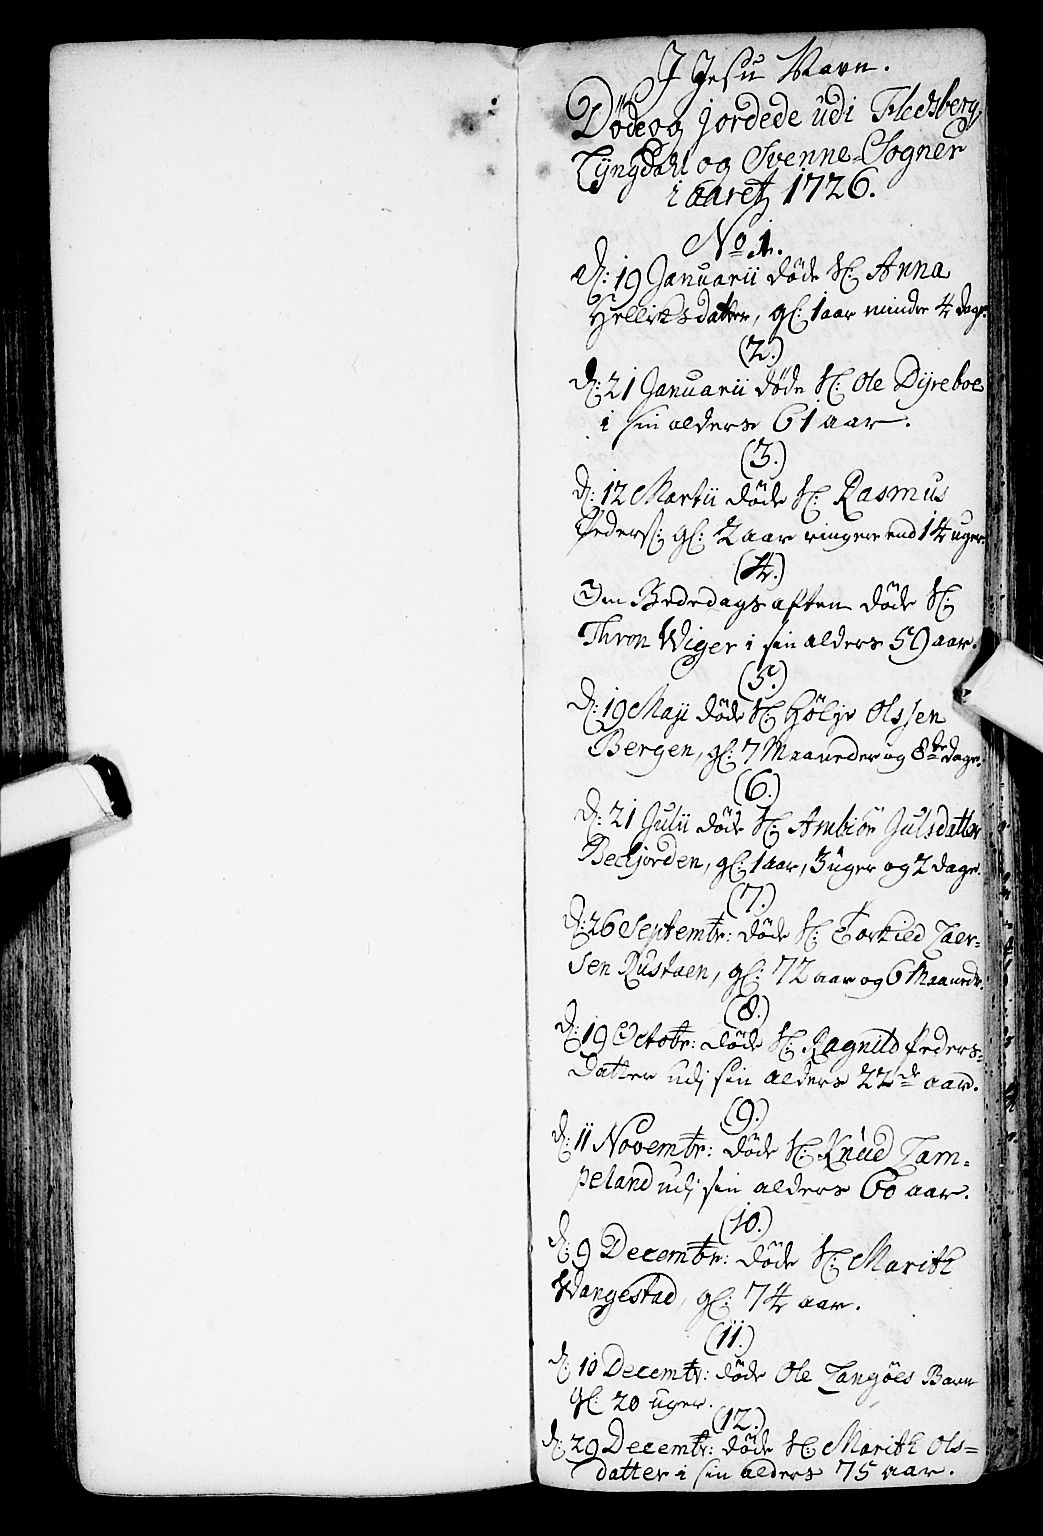 J Jesu Navn.
Döde og jordede udi Fledsberg
Lyngdahl og Svenne-Sogner
i aaret 1726.
No 1.
d: 19 Januarii döde Sl: Anna
Helliksdatter, gl: 1 aar mindre 4 dage.
(2.)
d: 21 Januarii döde Sl: Ole Dyreboe
i sin alders 61 aar.
(3.)
d: 12 Martii döde Sl: Rasmus
Peders: gl: 2 aar ringere end 14 uger.
(4.)
Om Bededags aften döde Sl:
Thron Wiger i sin alders 59 aar.
(5.)
d: 19 Maji döde Sl: Hölje Olssen
Bergen, gl: 7 Maaneder og 8te dage.
(6.)
d: 21 Julii döde Sl: Ambiör Julsdatter
Becjorden, gl: 1 aar, 3 uger og 2 dage.
(7.)
d: 26 Septembr: döde Sl: Torkied Laer-
sen Rustaen, gl: 72 aar og 6 Maaneder.
(8.)
d: 19 Octobr: döde Sl: Ragnild Peders-
datter udj sin alders 22de aar.
(9.)
d: 11 Novembr: döde Sl: Knud Lam-
peland udj sin alders 60 aar.
(10.)
d: 9 Decembr: döde Sl: Marith
Wangestad, gl: 74 aar.
(11.)
d: 10 Decembr: döde Ole Langöes Barn
gl: 20 uger.
(12.)
d: 29 Decembr: döde Sl: Marith Ols-
datter i sin alders 75 aar.